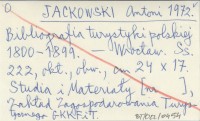 JACKOWSKI Antoni 1972.
Bibliografia turystyki polskiej
1800-1899. — Wrocław. Ss.
222, okt., obw., cm 24 x 17.
Studia i Materiały
Zakład Zagospodarowania Turys-
tycznego GKKFiT.